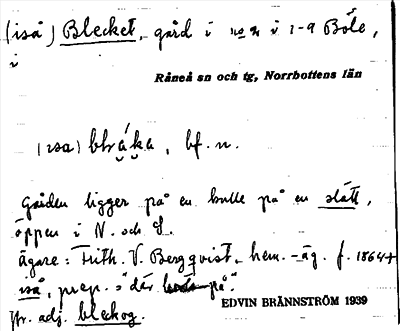 (iså) Blecket, gård i no 2 i 1-9 Böle,
i
Råneå sn och tg, Norrbottens län
(isa) bf. n.
Gården ligger på en kulle på en slätt,
öppen i N. och S.
ägare: Frith. V. Bergqvist, hem.-äg. f. 1864
iså, prep. = "där på".
jfr. adj. bleckog.
EDVIN BRÄNNSTRÖM 1939